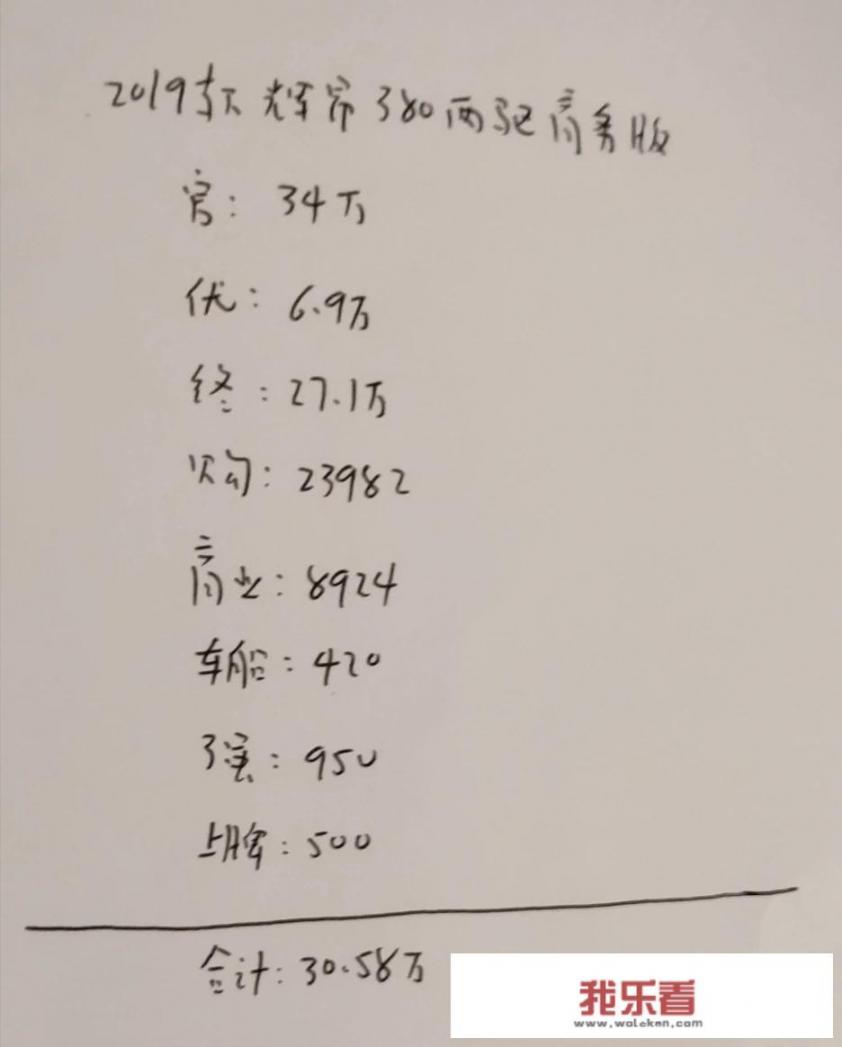 2019款 辉昂380两驱商务版
官: 34万
优: 6.9万
终: 27.1万
购: 23982
商业: 8924
车船: 420
强: 950
上牌: 500
合计: 30.58万
我乐看
www.woleken.com